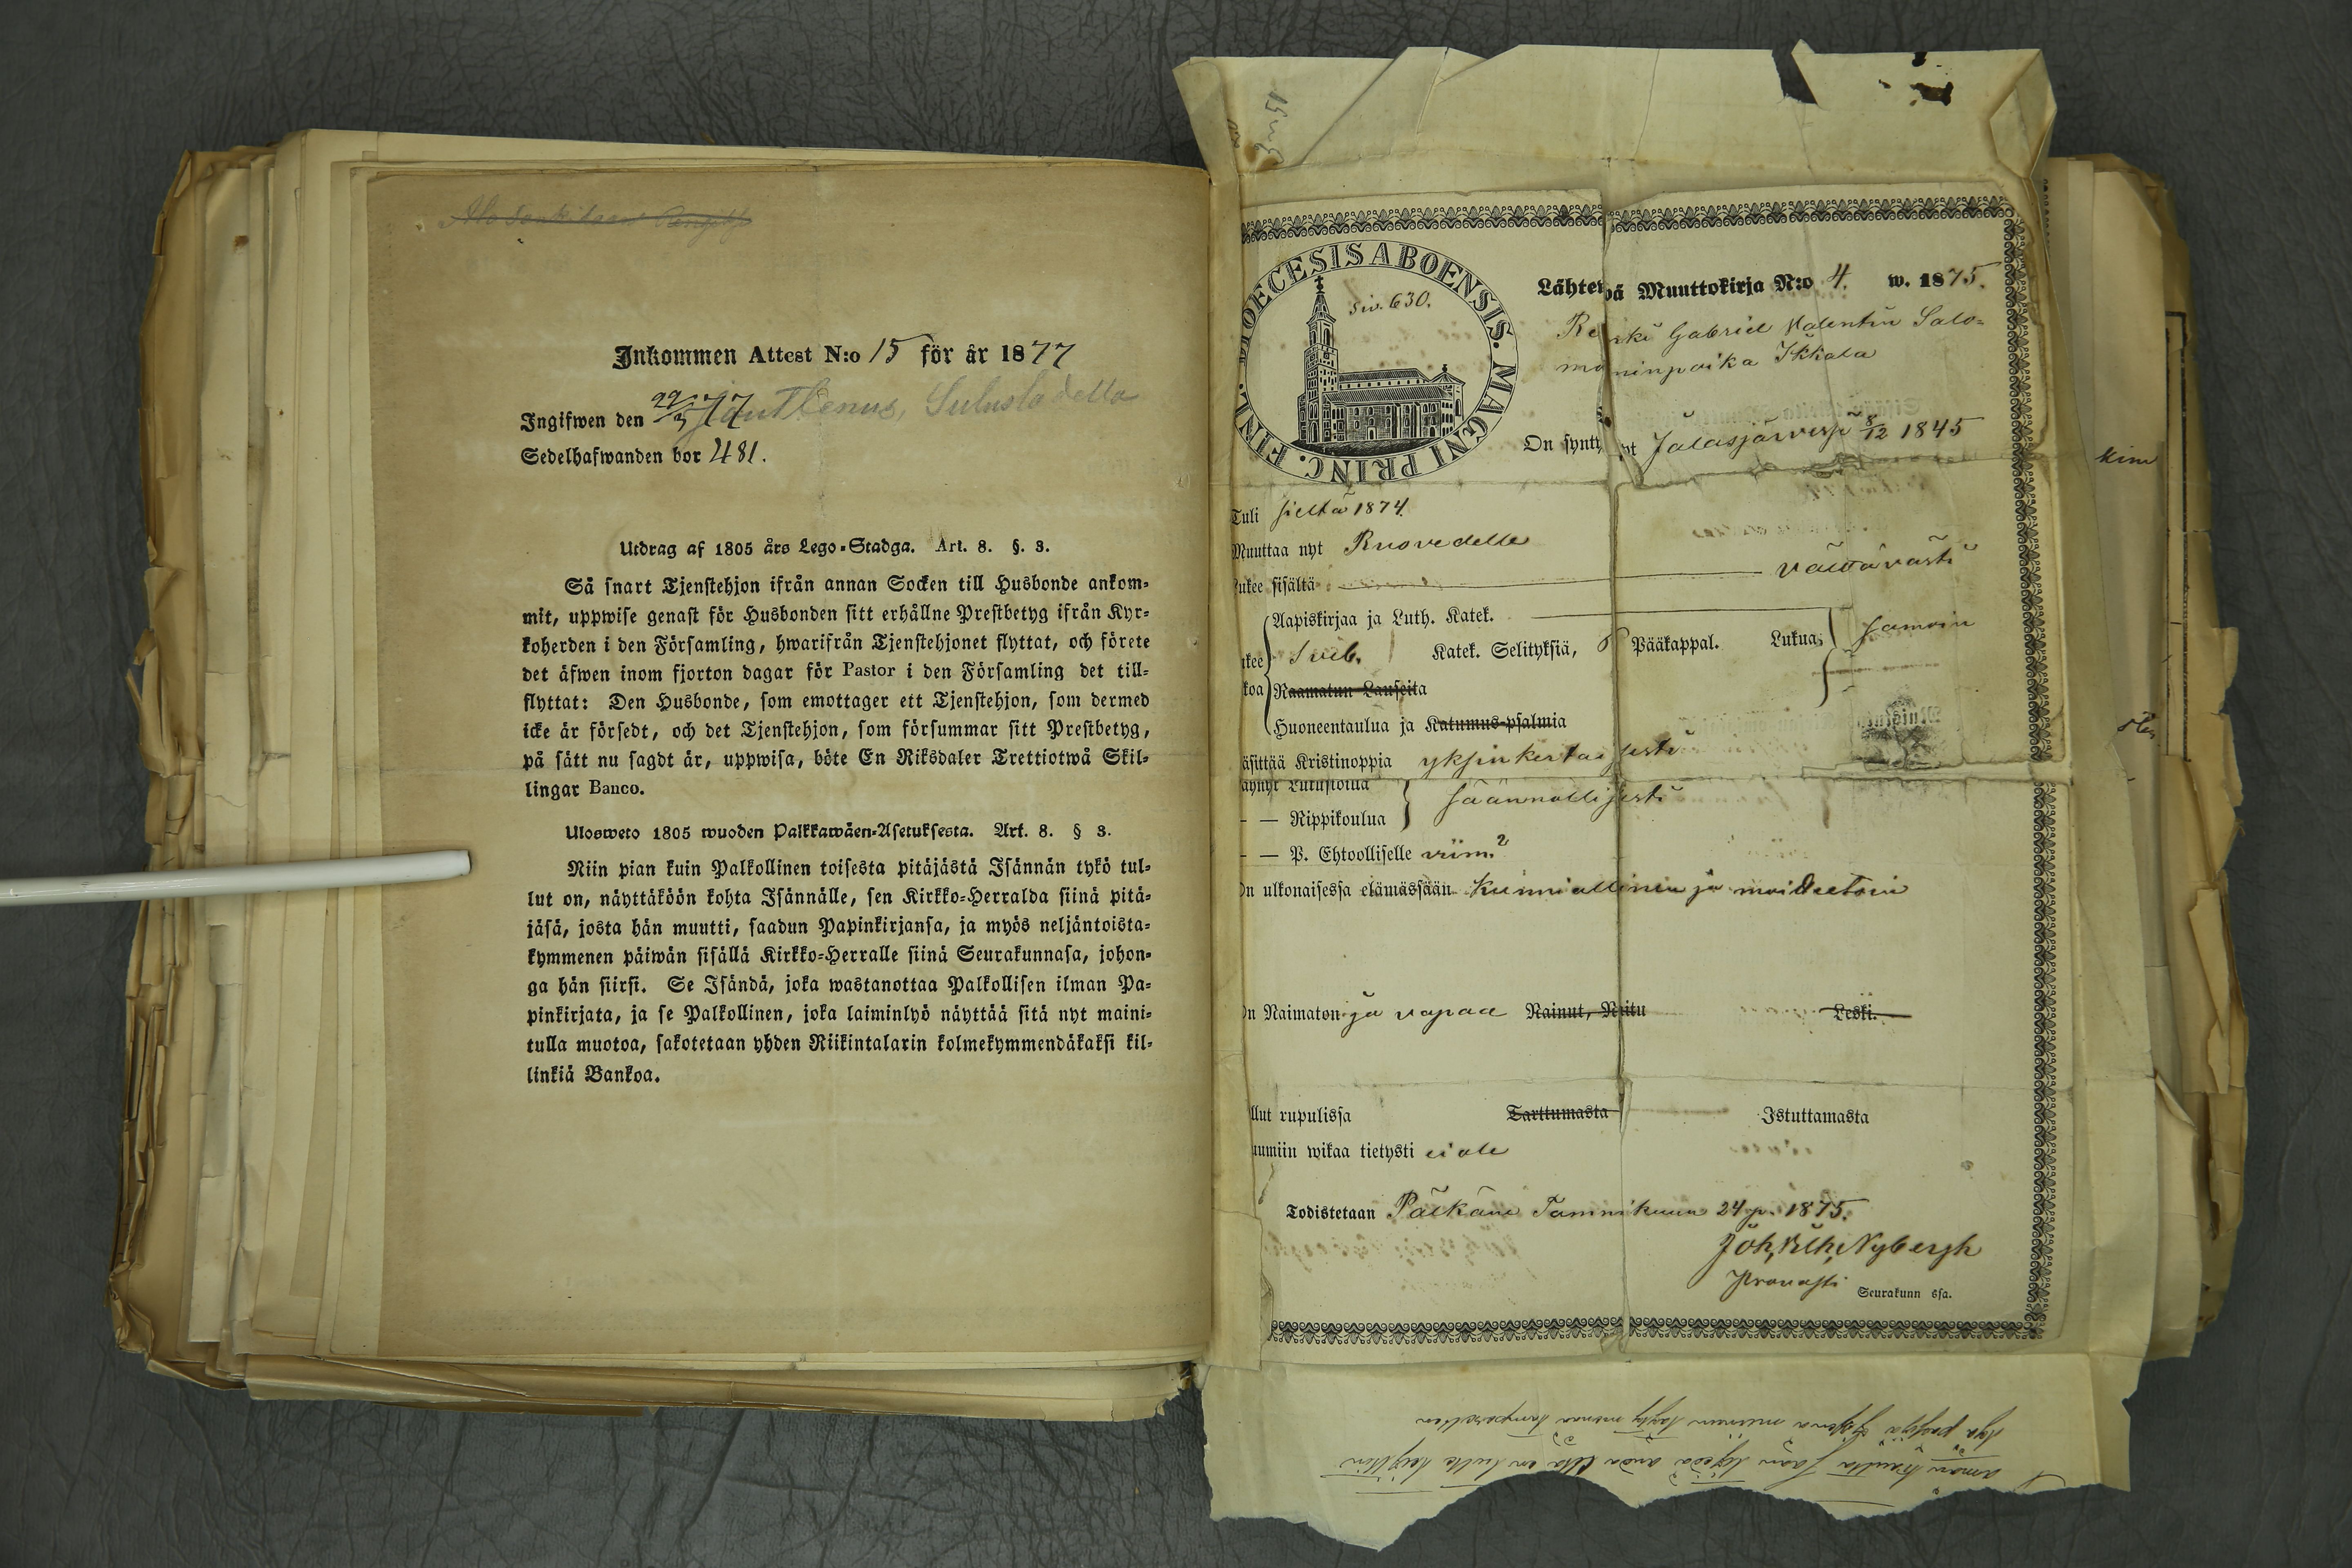 Inkommen Attest N:o 15 för år 1877
Ingifwen den 22/3 77
Sedelhafwanden bor 481.
Utdrag af 1805 års Lego-Stadga. Art. 8. §. 3.
Så snart Tjenstehjon ifrån annan Socken till Husbonde ankom-
mit, uppwise genast för Husbonden sitt erhållne Prestbetyg ifrån Kyr-
koherden i den Församling, hwarifrån Tjenstehjonet flyttat, och förete
det äfwen inom fjorton dagar för Pastor i den Församling det till-
flyttat: Den Husbonde, som emottager ett Tjenstehjon, som dermed
icke är försedt, och det Tjenstehjon, som försummar sitt Prestbetyg,
på sätt nu sagdt är, uppwisa, böte En Riksdaler Trettiotwå Skil-
lingar Banco.
Ulosweto 1805 wuoden Palkkawäen-Asetuksesta. Art. 8. § 3.
Niin pian kuin Palkollinen toisesta pitäjästä Isännän tykö tul-
lut on, näyttäköön kohta Isännälle, sen Kirkko-Herralda siinä pitä-
jäsä, josta hän muutti, saadun Papinkirjansa, ja myös neljäntoista-
kymmenen päiwän sisällä Kirkko-Herralle siinä Seurakunnasa, johon-
ga hän siirsi. Se Isändä, joka wastanottaa Palkollisen ilman Pa-
pinkirjata, ja se Palkollinen, joka laiminlyö näyttää sitä nyt maini-
tulla muotoa, sakotetaan yhden Riikintalarin kolmekymmendäkaksi kil-
linkiä Bankoa.
DIOECESIS ABOENSIS. MAGNI PRINC. FINL.
Siv. 630.
Lähtevä Muuttokirja N:o 4. w. 1875.
Renki Gabriel Valentin Salo-
moninpoika Ikkala
On syntynyt Jalasjärvessä 8/12 1845
Tuli sieltä 1874.
Muuttaa nyt Ruovedelle
ukee sisältä välttävästi
Aapiskirjaa ja Luth. Katek.
Sveb. Katek. Selityksiä, Pääkappal. Lukua; samoin
Raamatun Lauseita
Huoneentaulua ja Katumus-psalmia
äsittää Kristinoppia yksinkertaisesti
äynyt Lukusioilla säännöllisesti
— — Rippikoulua
— — P. Ehtoollisella viim.
On ulkonaisessa elämässään kunniallinen ja moitteetoin
On Naimaton ja vapaa Nainut, Leski.
llut rupulissa Tarttumasta Istuttamasta
uumiin wikaa tietysti ei ole
Todistetaan Pälkäne Tammikuun 24 p. 1875.
Joh. Vilh. Nybergh
Provasti
Seurakunn ssa.